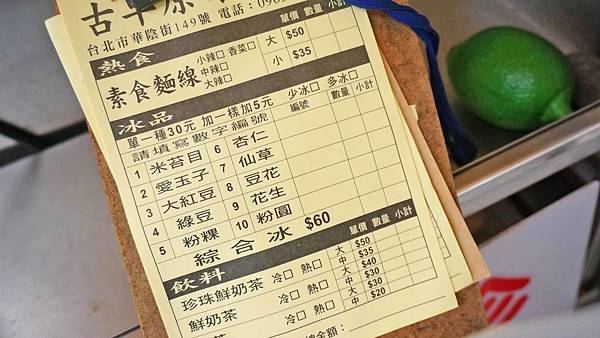 古早
台北市華陰街149號 電話：090
熱食 單價 數量 小計
小辣□ 香菜□ 大 $50
素食麵線 中辣□ 小 $35
大辣□
冰品 少冰□ 多冰□
單一種30元 加一樣加5元 編號 數量 小計
請填寫數字編號
1 米苔目 6 杏仁
2 愛玉子 7 仙草
3 大紅豆 8 豆花
4 綠豆 9 花生
5 粉粿 10 粉圓
綜合冰 $60
飲料 單價 數量 小計
珍珠鮮奶茶 冷□ 熱□ 大 $50
中 $35
鮮奶茶 冷□ 熱□ 大 $40
中 $30
冷□ 熱□ 大 $30
中 $20
總金額：